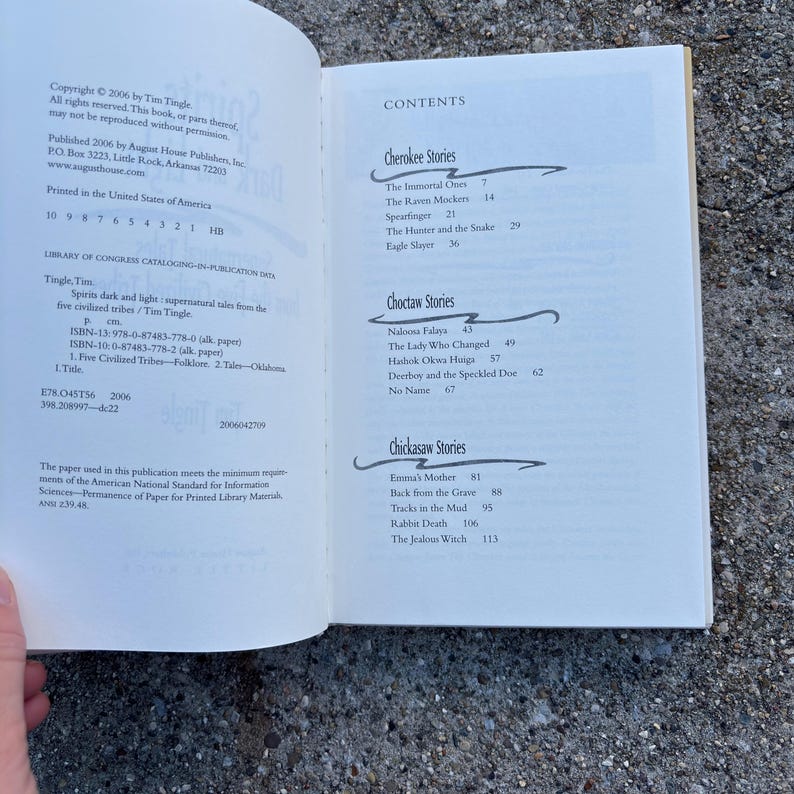 Copyright © 2006 by Tim Tingle.
All rights reserved. This book, or parts thereof,
may not be reproduced without permission.
Published 2006 by August House Publishers, Inc.
P.O. Box 3223, Little Rock, Arkansas 72203
www.augusthouse.com
Printed in the United States of America
10 9 8 7 6 5 4 3 2 1 HB
LIBRARY OF CONGRESS CATALOGING-IN-PUBLICATION DATA
Tingle, Tim.
Spirits dark and light : supernatural tales from the
five civilized tribes / Tim Tingle.
p. cm.
ISBN-13: 978-0-87483-778-0 (alk. paper)
ISBN-10: 0-87483-778-2 (alk. paper)
1. Five Civilized Tribes—Folklore. 2. Tales—Oklahoma.
I. Title.
E78.O45T56 2006
398.208997—dc22
2006042709
The paper used in this publication meets the minimum require-
ments of the American National Standard for Information
Sciences—Permanence of Paper for Printed Library Materials,
ANSI Z39.48.
CONTENTS
Cherokee Stories
The Immortal Ones 7
The Raven Mockers 14
Spearfinger 21
The Hunter and the Snake 29
Eagle Slayer 36
Choctaw Stories
Naloosa Falaya 43
The Lady Who Changed 49
Hashok Okwa Huiga 57
Deerboy and the Speckled Doe 62
No Name 67
Chickasaw Stories
Emma's Mother 81
Back from the Grave 88
Tracks in the Mud 95
Rabbit Death 106
The Jealous Witch 113